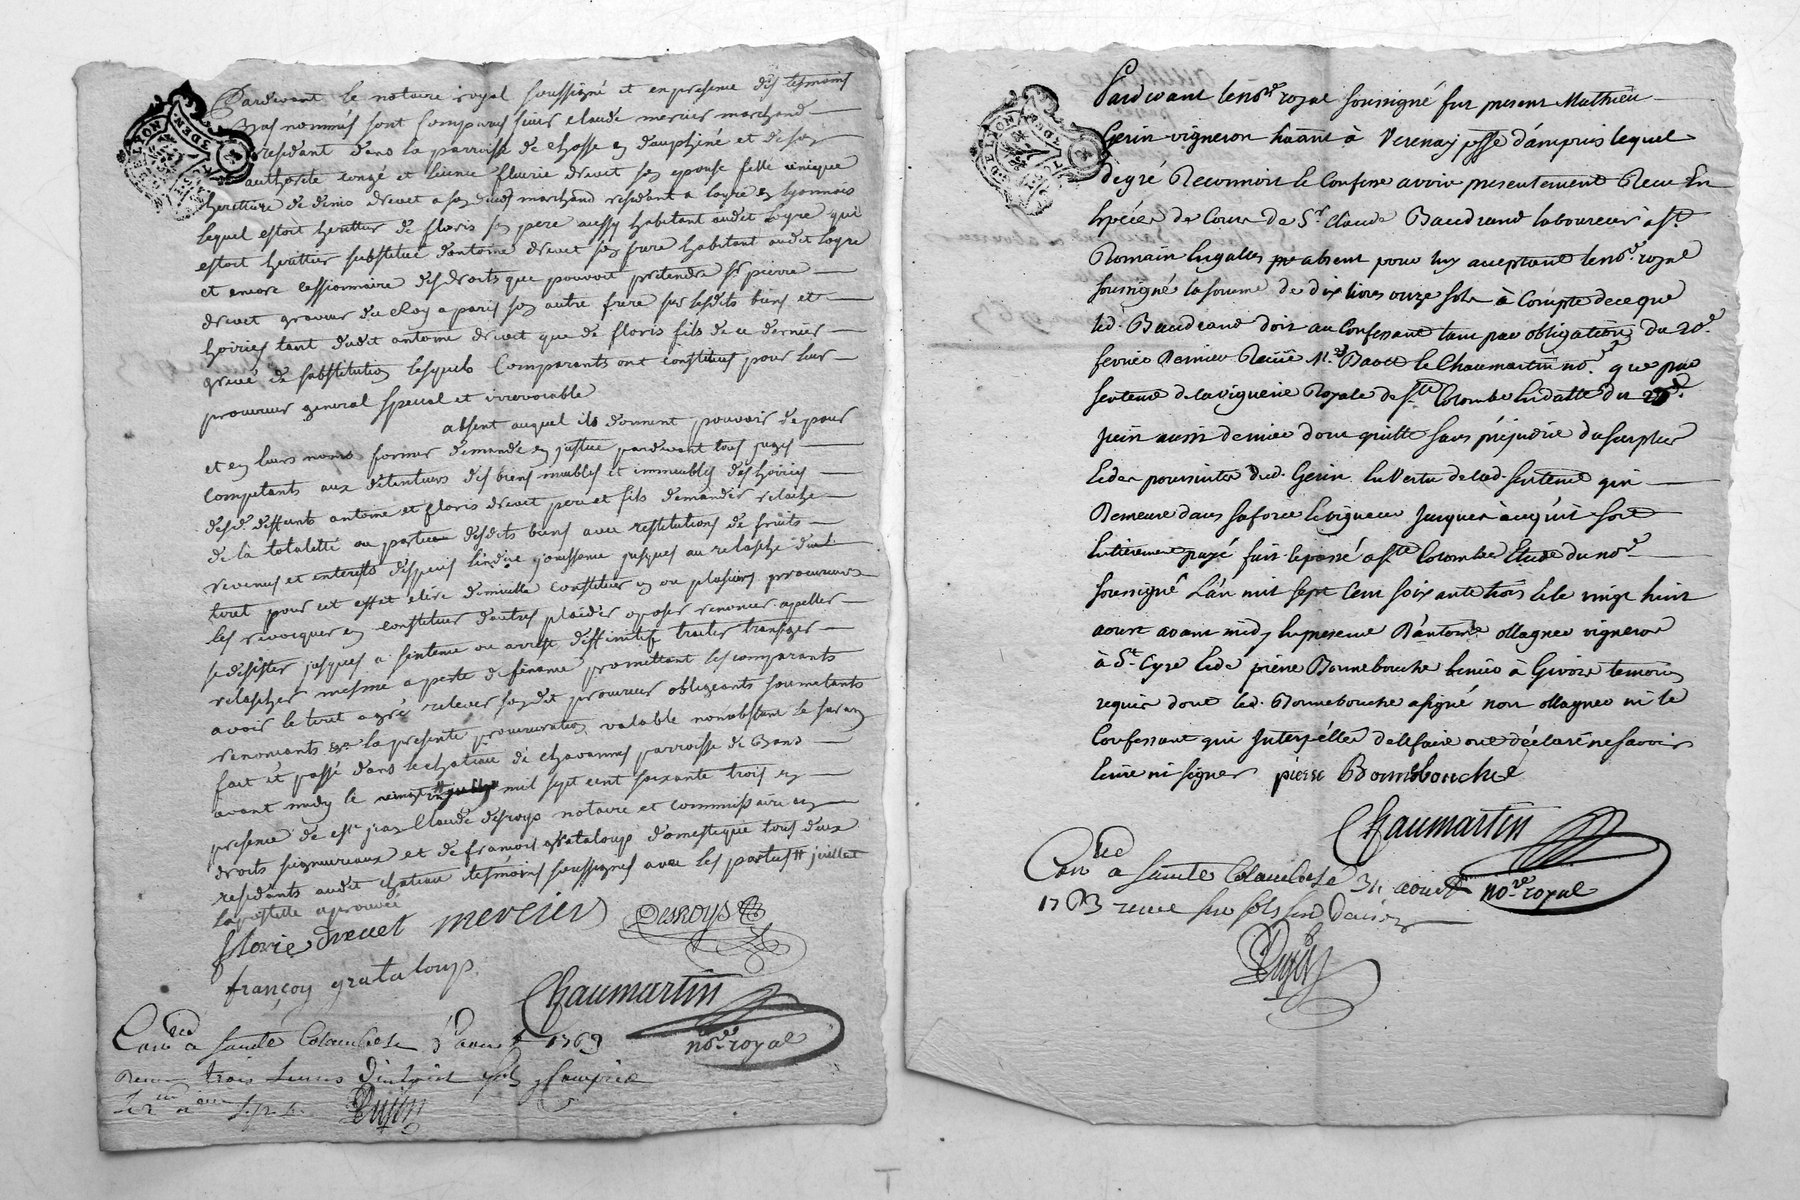 Pardevant le notaire royal soussigné et en presence des tesmoins
bas nommés sont comparus sieur claude mercier marchand
residant dans la parroisse de chasse en dauphiné et de son
authorité congé et licence fleurie drevet son epouse fille unique
heritiere de denis drevet a son marchand residant a loyre en lyonnois
lequel estoit heritier de floris son pere aussy habitant audit loyre qui
estoit heritier substitué d'antoine drevet son frere habitant audit loyre
et encore cessionnaire des droits que pouvoit pretendre sr pierre
drevet graveur du Roy a paris son autre frere sur lesdits biens et
hoiries tant dudit antoine drevet que de floris fils de ce dernier
grevé de substitution lesquels Comparants ont constitués pour leur
procureur general special et irrevocable
absent auquel ils donnent pouvoir de pour
et en leurs noms former demande en justice pardevant tous juges
competants aux detenteurs des biens meubles et immeubles des hoiries
desd. deffunts antoine et floris drevet pere et fils demander relache
de la totalitté ou parties desdits biens avec restitutions de fruits
revenus et interests despuis l'indue jouissance jusques au relasche dont
tout pour cet effet elire domicille constituer un ou plusieurs procureurs
les revocquer en constituer d'autres plaider oposer renoncer appeller
se desister jusques a sentence ou arrest deffinitif traiter transiger
relascher mesme a perte de finance promettant les comparants
avoir le tout agré relever sondit procureur obligeants soumetants
renonceants la presente procuration valable nonobstant le suran
fait et passé dans le chateau de chavannes parroisse de
avant midy le mil sept cent soixante trois en
presence de me jean Claude desroys notaire et commissaire en
droits seigneuriaux et de francois grataloup domestique tous deux
residants audit chateau tesmoins soussignes avec les parties juillet
la postille aprouvée
florie drevet mercier Desroys
françoy grataloup
Chaumartin
nore royal
Con̄ a sainte Colombe le 3 aoust 1763
Receu trois livres dix huit sols
Dujon
Pardevant le nore royal soussigné fut present Mathieu
Gerin vigneron habitant à Verenay psse d'ampuis lequel
de gré Reconnoit & Confesse avoir presentement Receu En
Espéces de Cours de Sr Claude Baudrand laboureur a St
Romain Engalles absent pour luy acceptant le nore royal
soussigné la somme de dix livres onze sols à Compte de ce que
led. Baudrand doit au Confessant tant par obligation du 20e
fevrier dernier Receüe Me Chaumartin nore que par
sentence de la viguerie Royale de Ste Colombe En datte du
Juin aussi dernier dont quitte sans préjudice du surplus
& des poursuites dud. Gerin En Vertu de lad. sentence qui
Demeure dans sa force & vigueur Jusques à ce qu'il soit
Entierement payé fait & passé a Ste Colombe Etude du nore
soussigné L'an mil sept cent soixante trois & le vingt huit
aoust avant midy En presence d'antoine ollagnier vigneron
à St Cyre & de pierre Bonnebouche à Givors temoins
requis dont led. Bonnebouche a signé non ollagnier ni le
Confessant qui Interpellés de le faire ont déclaré ne savoir
Ecrire ni signer pierre Bonnebouche
Chaumartin
nore royal
Con̄ a sainte Colombe le 31 aoust
1763 receu six sols six deniers
Dujon